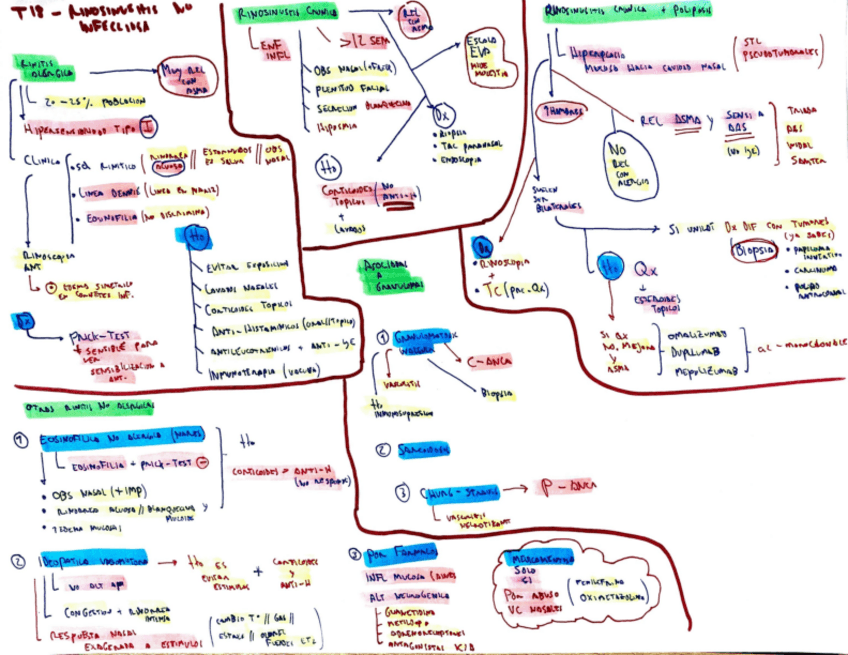 T18 - RINOSINUSITIS NO
INFECCIOSA
RINITIS
ALÉRGICA
MUY REL
CON
ASMA
20-25% POBLACIÓN
HIPERSENSIBILIDAD TIPO I
CLÍNICA
RINORREA
ACUOSA
ESTORNUDOS
EN SALVA
OBS
NASAL
LINEA DENNIE (LINEA EN NARIZ)
EOSINOFILIA
RINOSCOPIA
ANT
EDEMA SIMÉTRICO
EN CORNETES INF.
DX
PRICK-TEST
+ SENSIBLE PARA
VER
SENSIBILIZACIÓN A
ANT.
TTO
EVITAR EXPOSICIÓN
LAVADOS NASALES
CORTICOIDES TÓPICOS
ANTI-HISTAMÍNICOS (ORAL/TÓPICO)
ANTILEUCOTRIENOS + ANTI-IGE
INMUNOTERAPIA (VACUNA)
RINOSINUSITIS CRÓNICA
REL
CON
ASMA
ENF
INFL
>12 SEM
OBS NASAL
PLENITUD FACIAL
SECRECIÓN BLANQUECINA
HIPOSMIA
ESCALA
EVA
MIDE
MOLESTIA
DX
BIOPSIA
TAC PARANASAL
ENDOSCOPIA
TTO
CORTICOIDES
TÓPICOS
(NO
ANTI-H)
+
LAVADOS
RINOSINUSITIS CRÓNICA + POLIPOSIS
HIPERPLASIA
MUCOSA HACIA CAVIDAD NASAL
PSEUDOTUMORALES
↑HOMBRES
REL ASMA Y SENSI A
AAS
(NO IgE)
TRIADA
AAS
WIDAL
SAMTER
NO
REL
CON
ALERGIA
SUELEN
SER
BILATERALES
SI UNILAT DX DIF CON TUMORES
(YA SABES)
BIOPSIA
PAPILOMA
INVERTIDO
CARCINOMA
PÓLIPO
ANTROCOANAL
DX
RINOSCOPIA
+
TC (PRE-QX)
TTO QX
+
ESTEROIDES
TÓPICOS
SI QX
NO MEJORA
Y
ASMA
OMALIZUMAB
DUPILUMAB
MEPOLIZUMAB
AC-MONOCLONALES
ASOCIADAS
A
GRANULOMAS
① GRANULOMATOSIS
WEGENER
C-ANCA
VASCULITIS
BIOPSIA
TTO
INMUNOSUPRESIÓN
② SARCOIDOSIS
③ CHURG-STRAUSS → P-ANCA
VASCULITIS
NECROTIZANTE
OTRAS RINITIS NO ALÉRGICAS
① EOSINOFÍLICA NO ALÉRGICA (NARES)
EOSINOFILIA + PRICK-TEST ⊖
OBS NASAL (+IMP)
RINORREA ACUOSA // BLANQUECINA Y
MUCOIDE
EDEMA MUCOSA
TTO
CORTICOIDES + ANTI-H
② IDEOPÁTICA VASOMOTORA
NO ALT
CONGESTIÓN + RINORREA
INTENSA
RESPUESTA NASAL
EXAGERADA A ESTÍMULOS
(CAMBIO Tª // GAS //
OLORES
FUERTES ETC)
TTO ES
EVITAR
ESTÍMULOS
+
CORTICOIDES
Y
ANTI-H
③ POR FÁRMACOS
INFL MUCOSA (AINES)
ALT NEUROGÉNICA
GUANETIDINA
METILDOPA
ANTAGONISTAS
MEDICAMENTOSA
SOLO
SI
POR ABUSO
VC NASALES
(FENILEFRINA
OXIMETAZOLINA)